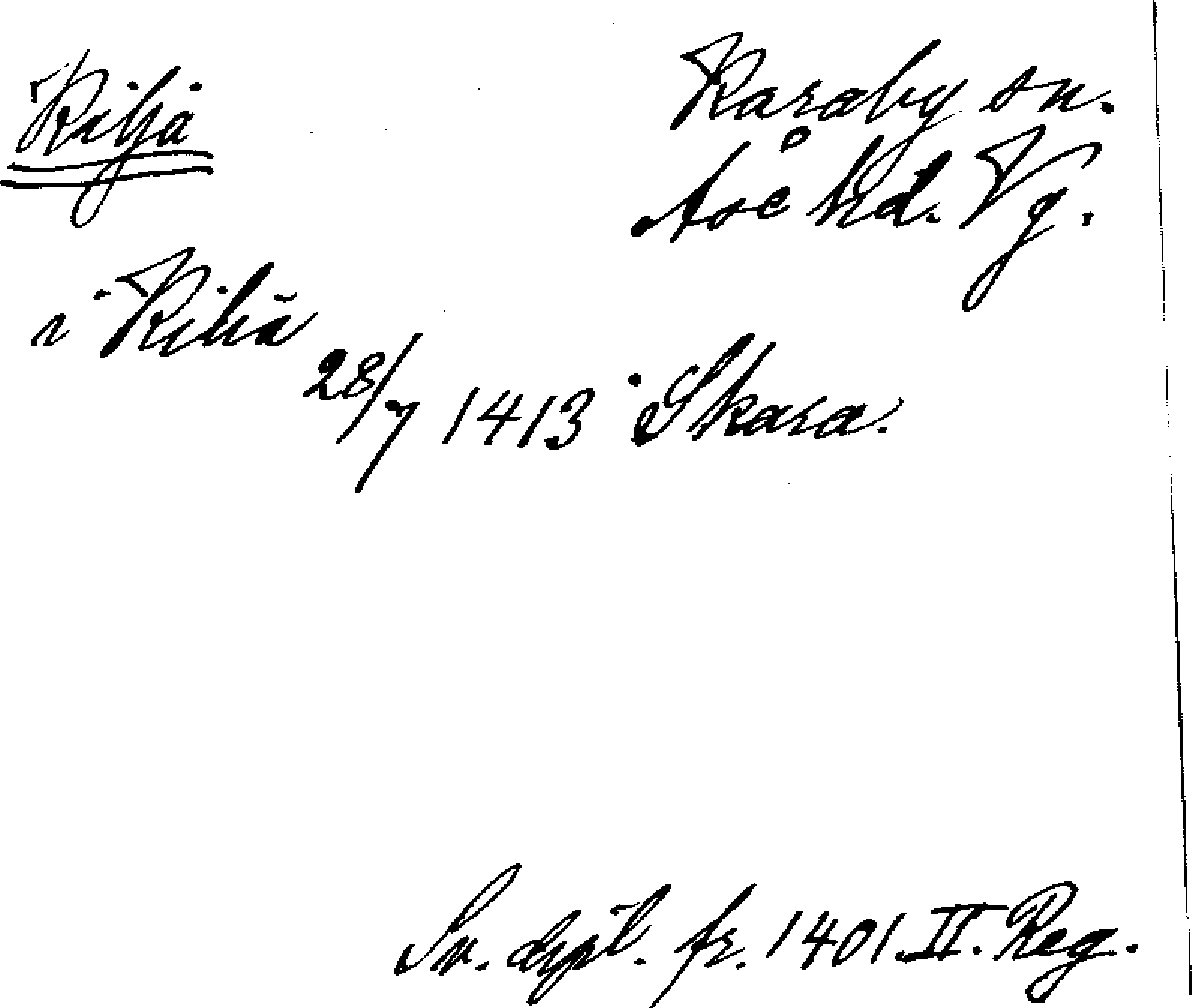 Kiljä
Karaby sn.
Åse hd. Vg.
i Kiliä
28/7 1413 Skara.
Sv. dipl. fr. 1401. II. Reg.